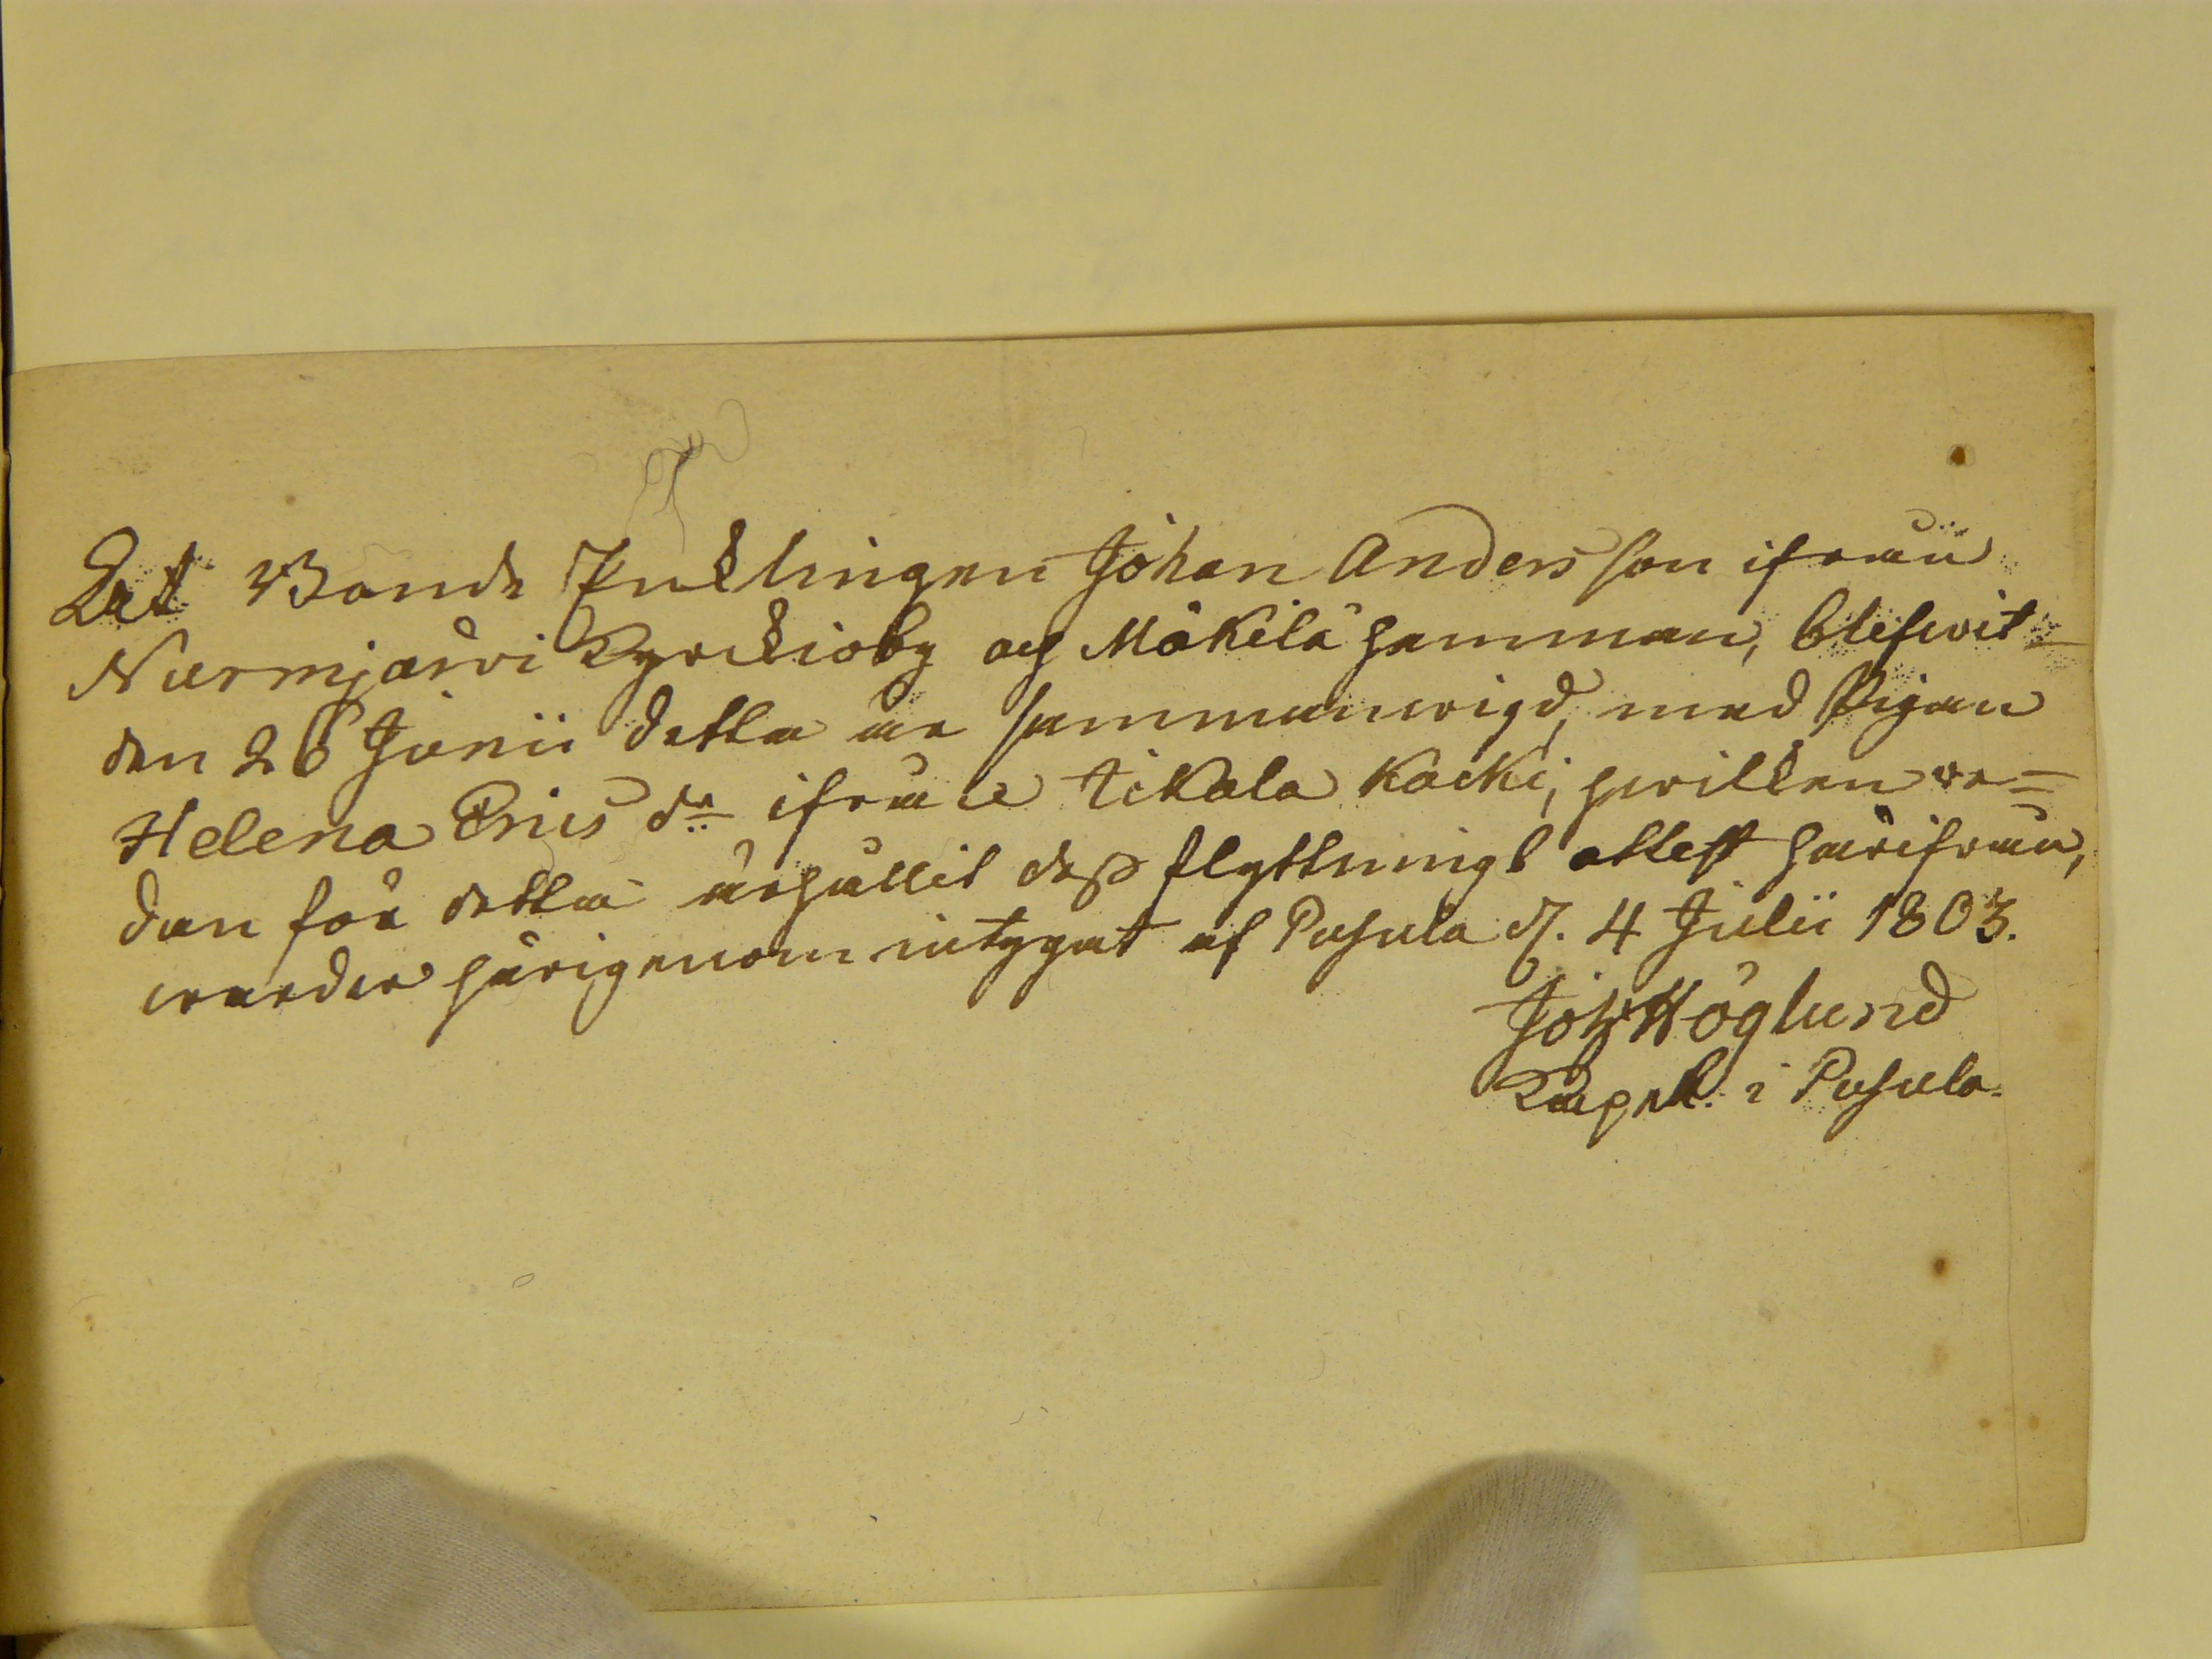 Det Bonde Änklingen Johan Andersson ifrån
Nurmjärvi Kyrckioby och Mäkilä hemman, blefwit
den 26 Junii detta år sammanwigd, med Pigan
Helena Erics dr ifrån Tikala Kacki, hwilken re=
dan för detta ärhållit dess flyttnings attest härifrån,
warder härigenom intygat af Pusula d. 4 Julii 1803.
Joh Höglund
Capel. i Pusula.